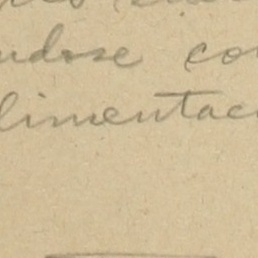 ndose co
limentac